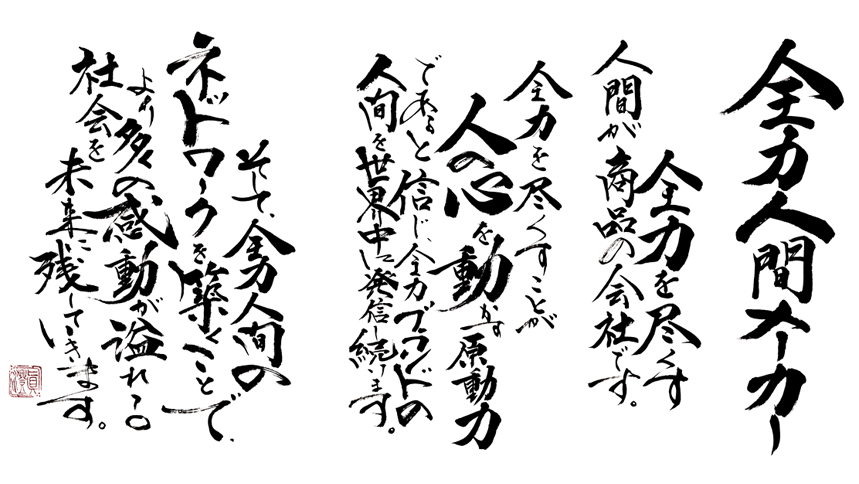 全力人間メーカー
全力を尽くす
人間が商品の会社です。
全力を尽くすことが
人の心を動かす原動力
であると信じ、全力ブランドの
人間を世界中に発信し続けます。
そして、全力人間の
ネットワークを築くことで、
より多くの感動が溢れる
社会を未来に残していきます。